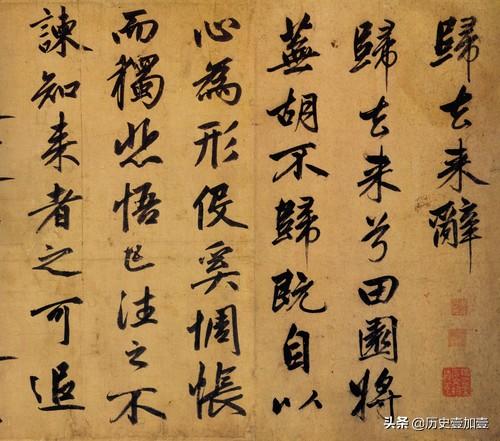 歸去来辭
歸去来兮田園將
蕪胡不歸既自以
心為形役奚惆悵
而獨悲悟已往之不
諫知来者之可追
头条 @历史壹加壹